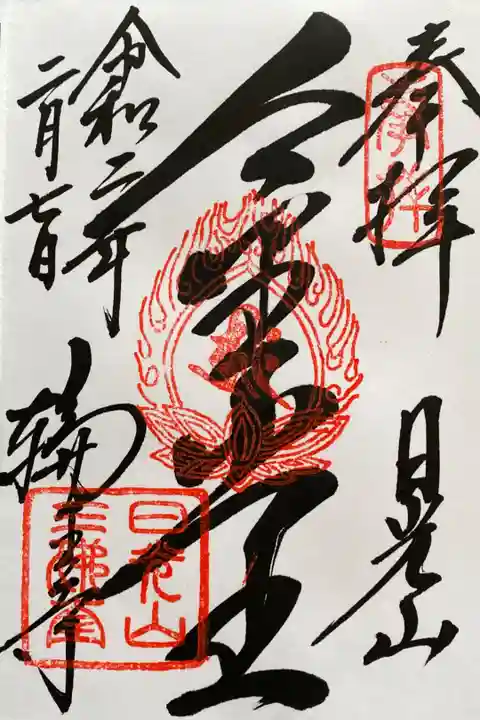 奉拝
日光山
金堂
令和二年
二月七日
輪王寺
日光山
三佛堂